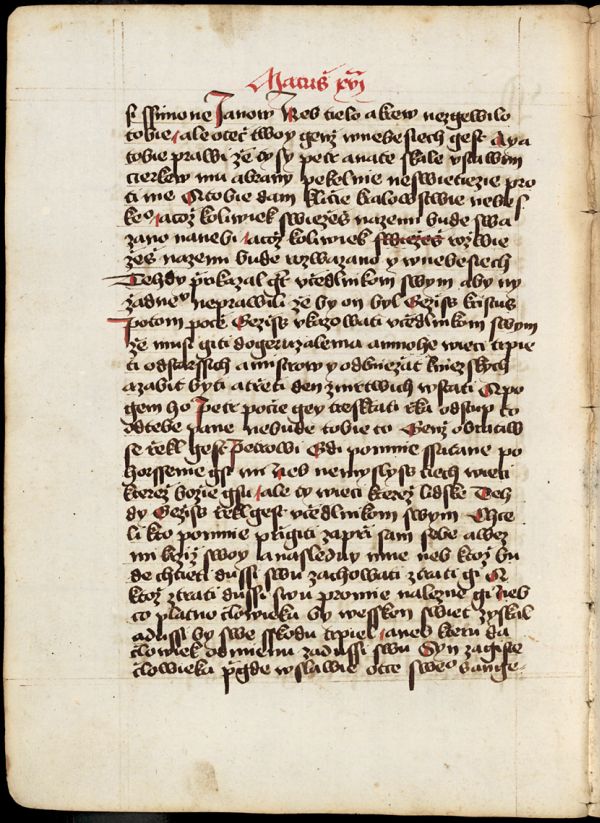 Matus xvi
si ssimone Janow Neb tielo a krew nezgewilo
tobie, ale otecz twoy genz wnebesiech gest A ya
tobie prawi ze ty sy petr a na te skale vstawim
cierkew mu a brany pekelnie neswietiezie pro
ti nie A tobie dam kliczie kralowstwie nebes
keo, a coz koliwiek swiezes na zemi bude swa
zano na nebi, a coz koliwiek swiezes rozwie
zes na zemi bude rozwazano y w nebesiech
Tehdy prikazal gest vczedlnikom swym aby ny
zadneo neprawili ze by on byl Gezijs kristus
Potom pocze Gezijs vkazowati vczedlnikom swym
ze musi giti do geruzalema a mnohe wieci trpie
ti od starssich a mistrow y od kniezat kniezskych
a zabit byti a trzeti den z mrtwich wstati A po
gem ho Petr pocze gey trzesktati rzka odstup to
od tebe pane nebude tobie to Genz obratiw
se rzekl gest Petrowi Gdi po mnie ssatane po
horssenie gsi mi Neb nemyslyss tiech wieci
kterez bozie gsu, ale ty wieci kterez lidske Teh
dy Gezijs rzekl gest vczedlnikom swym Chce
li kto po mnie przigiti zaprzi sam sebe a wez
mi krziz swoy a nasleduy mne neb ktoz bu
de chtieti dussi swu zachowati ztrati gi A
ktoz ztrati dussi swu pro mie nalezne gi Neb
co platno czlowieku by wessken swiet zyskal
a dussi by swe sskodu trpiel, aneb kteru da
czlowiek odmienu za dussi swu Syn zagiste
czlowieka przigde w slawie otce sweo s ange-